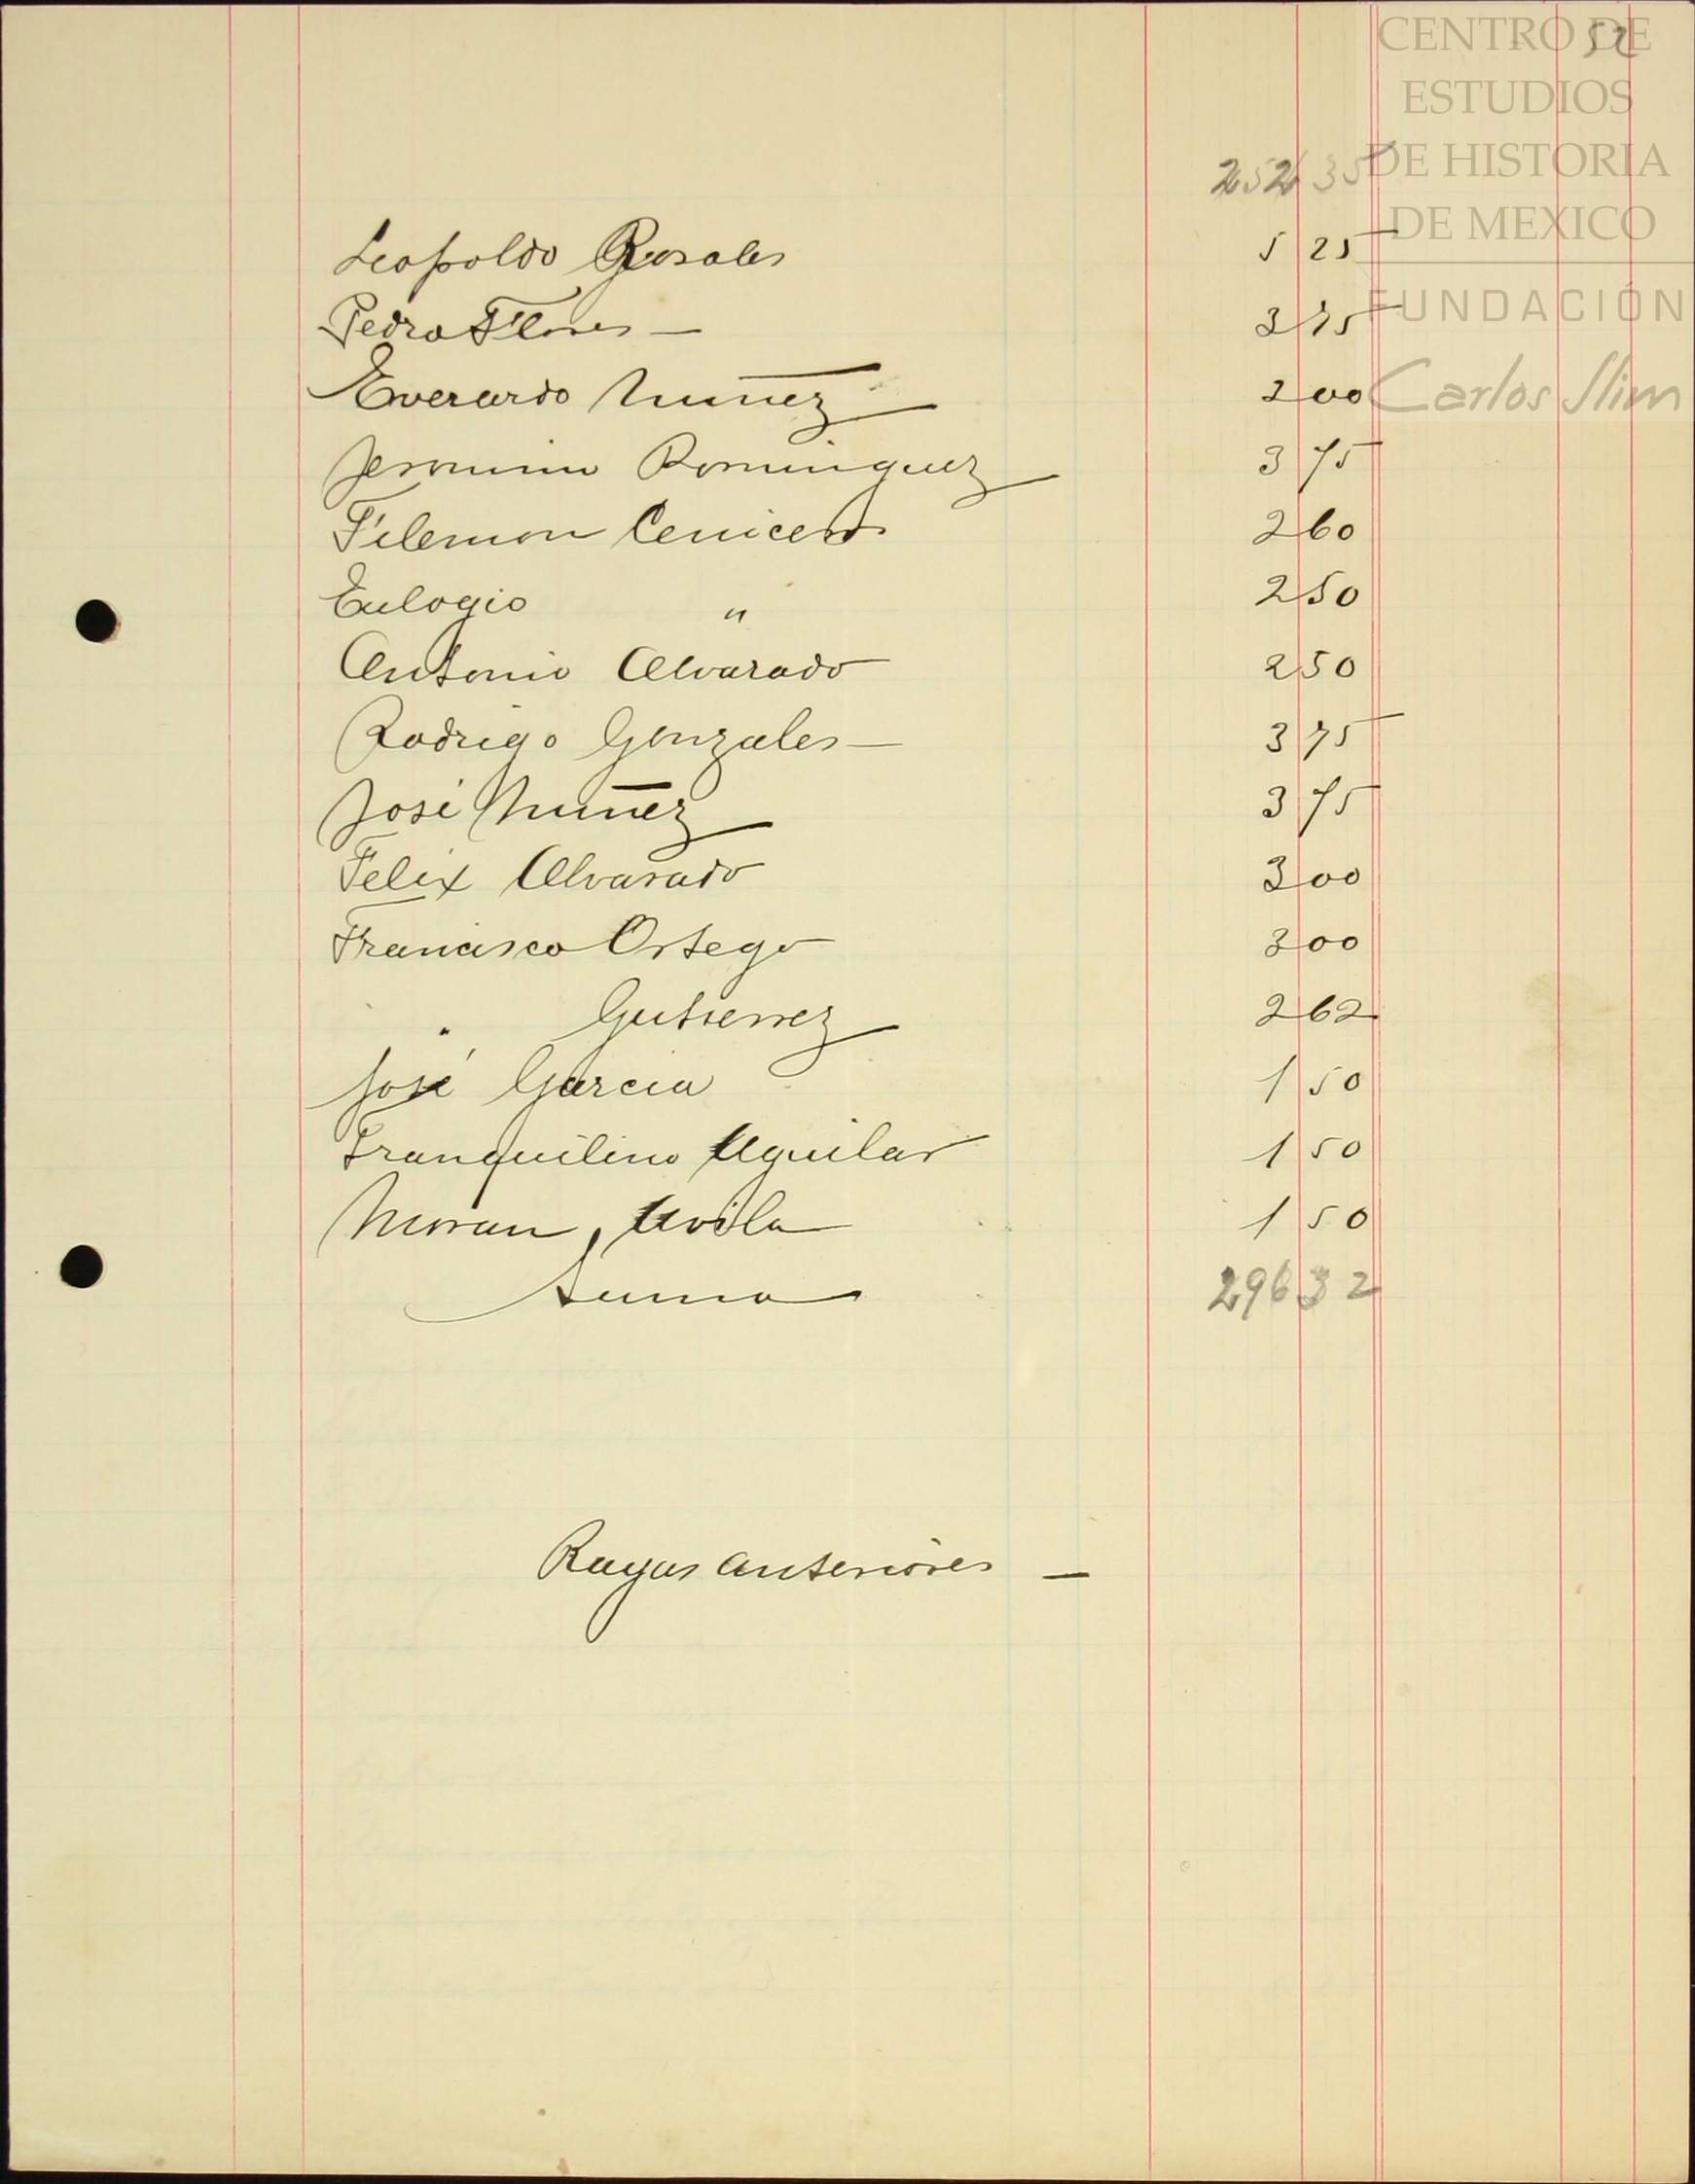 CENTRO DE
52
ESTUDIOS
DE HISTORIA
DE MEXICO
FUNDACIÓN
Carlos Slim
252 35
Leopoldo Rosales 5 25
Pedro Flores — 3 75
Everardo Nuñez 2 00
Jeronimo Dominguez 3 75
Filemon Cenicero 2 60
Eulogio " 2 50
Antonio Alvarado 2 50
Rodrigo Gonzales — 3 75
José Nuñez 3 75
Felix Alvarado 3 00
Francisco Ortega 3 00
" Gutierrez 2 62
José Garcia 1 50
Tranquilino Aguilar 1 50
Moran, Avila 1 50
Suma 296 32
Rayas anteriores —